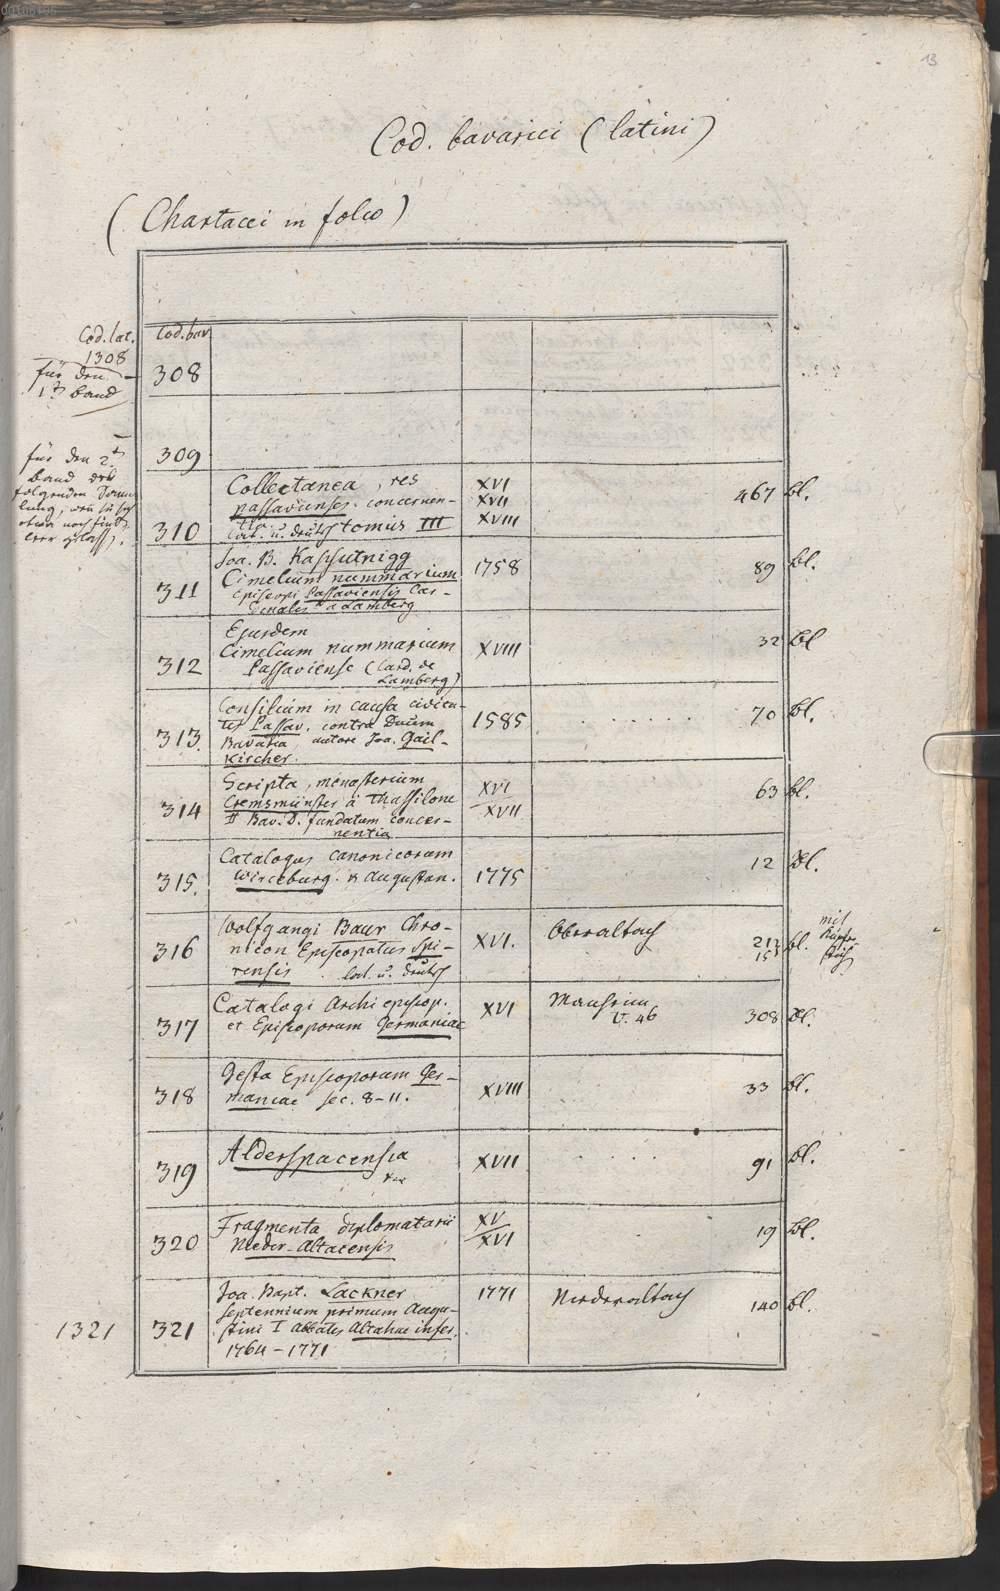 13
Cod. bavarici (latini)
(Chartacei in folio)
Cod. lat. Cod. bav
1308
für den 308
1t band
309
für den 2t
band der
folgenden
Collectanea, res XVI 467 bl.
passavienses concernen- XVII
310 tia. lat. u. deutsch tomus III XVIII
Joa. B. Kapsutnigg 1758 89 bl.
Cimelium nummarium
311 episcopi Passaviensis Car-
dinalis a Lamberg
Ejusdem XVIII 32 bl
312 Cimelium nummarium
Passaviense (Card. de
Lamberg)
Consilium in causa civita- 1585 . . . . . . . 70 bl.
tis Passav. contra Ducem
313. Bavaria, autore Joa. Gail-
kircher.
Scripta, monasterium XVI 63 bl.
314 Cremsmünster à Thassilone XVII
II Bav. D. fundatum concer-
nentia
Catalogus canonicorum 12 bl.
315. Wirceburg. & Augustan. 1775
Wolfgangi Baur Chro- XVI. Oberaltach 212 bl. mit
316 nicon Episcopatus Spi- 15
rensis. lat. u. deutsch
Catalogi Archiepiscop. XVI 308 bl.
317 et Episcoporum Germaniae V. 46
Gesta Episcoporum Ger- XVIII 33 bl.
318 maniae sec. 8-11.
319 Alderspacensia XVII . . . . 91 bl.
Fragmenta diplomatarii XV 19 bl.
320 Nieder-Altacensis XVI
Joa. Bapt. Lackner 1771 Niederaltach 140 bl.
septennium primum Augu-
1321 321 stini I abbatis Altahae infer.
1764-1771